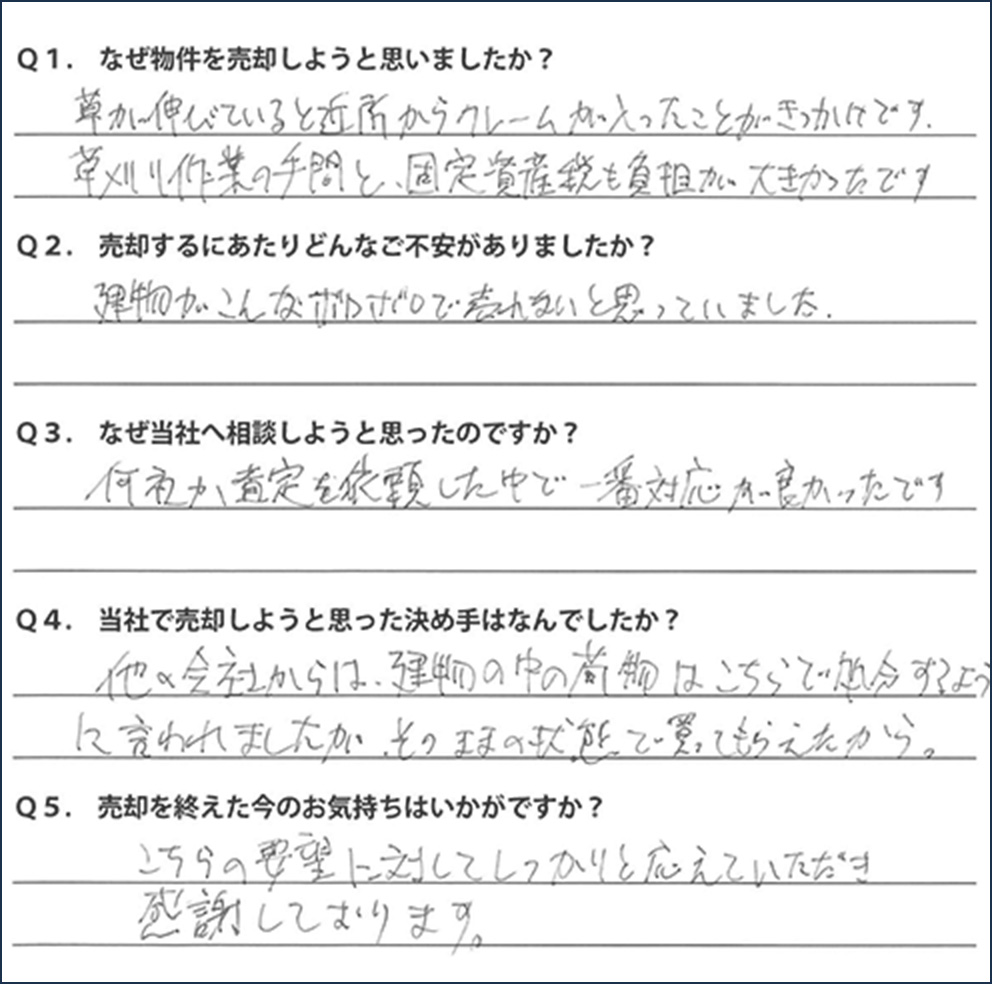 Q1. なぜ物件を売却しようと思いましたか?
草が伸びていると近所からクレームが入ったことがきっかけです.
草刈り作業の手間と、固定資産税も負担が大きかったです
Q2. 売却するにあたりどんなご不安がありましたか?
建物がこんなボロボロで売れないと思っていました.
Q3. なぜ当社へ相談しようと思ったのですか?
何社か、査定を依頼した中で一番対応が良かったです
Q4. 当社で売却しようと思った決め手はなんでしたか?
他の会社からは、建物の中の荷物はこちらで処分するよう
に言われましたが、そのままの状態で買ってもらえたから。
Q5. 売却を終えた今のお気持ちはいかがですか?
こちらの要望に対してしっかりと応えていただき
感謝しております。